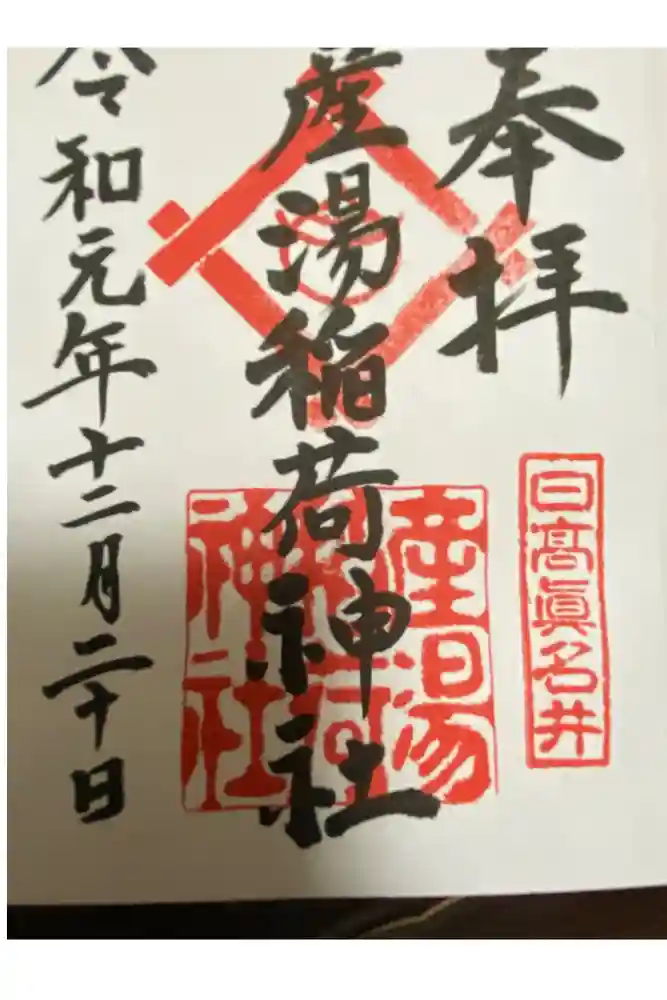 奉拝
日高眞名井
産湯稲荷神社
産湯稲荷神社
令和元年十二月二十日